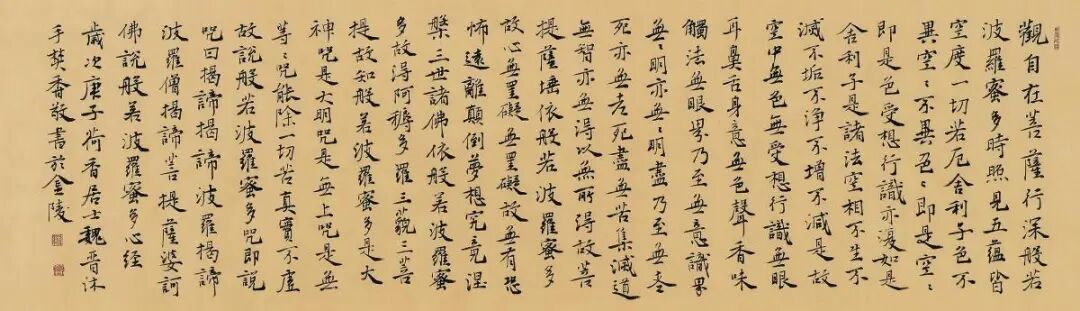 觀自在菩薩行深般若
波羅蜜多時照見五蘊皆
空度一切苦厄舍利子色不
異空〻不異色〻即是空〻
即是色受想行識亦復如是
舍利子是諸法空相不生不
滅不垢不淨不增不減是故
空中無色無受想行識無眼
耳鼻舌身意無色聲香味
觸法無眼界乃至無意識界
無〻明亦無〻明盡乃至無老
死亦無老死盡無苦集滅道
無智亦無得以無所得故菩
提薩埵依般若波羅蜜多
故心無罣礙無罣礙故無有恐
怖遠離顛倒夢想究竟涅
槃三世諸佛依般若波羅蜜
多故得阿耨多羅三藐三菩
提故知般若波羅蜜多是大
神咒是大明咒是無上咒是無
等〻咒能除一切苦真實不虛
故說般若波羅蜜多咒即說
咒曰揭諦揭諦波羅揭諦
波羅僧揭諦菩提薩婆訶
佛說般若波羅蜜多心經
歲次庚子荷香居士魏晋沐
手焚香敬書於金陵